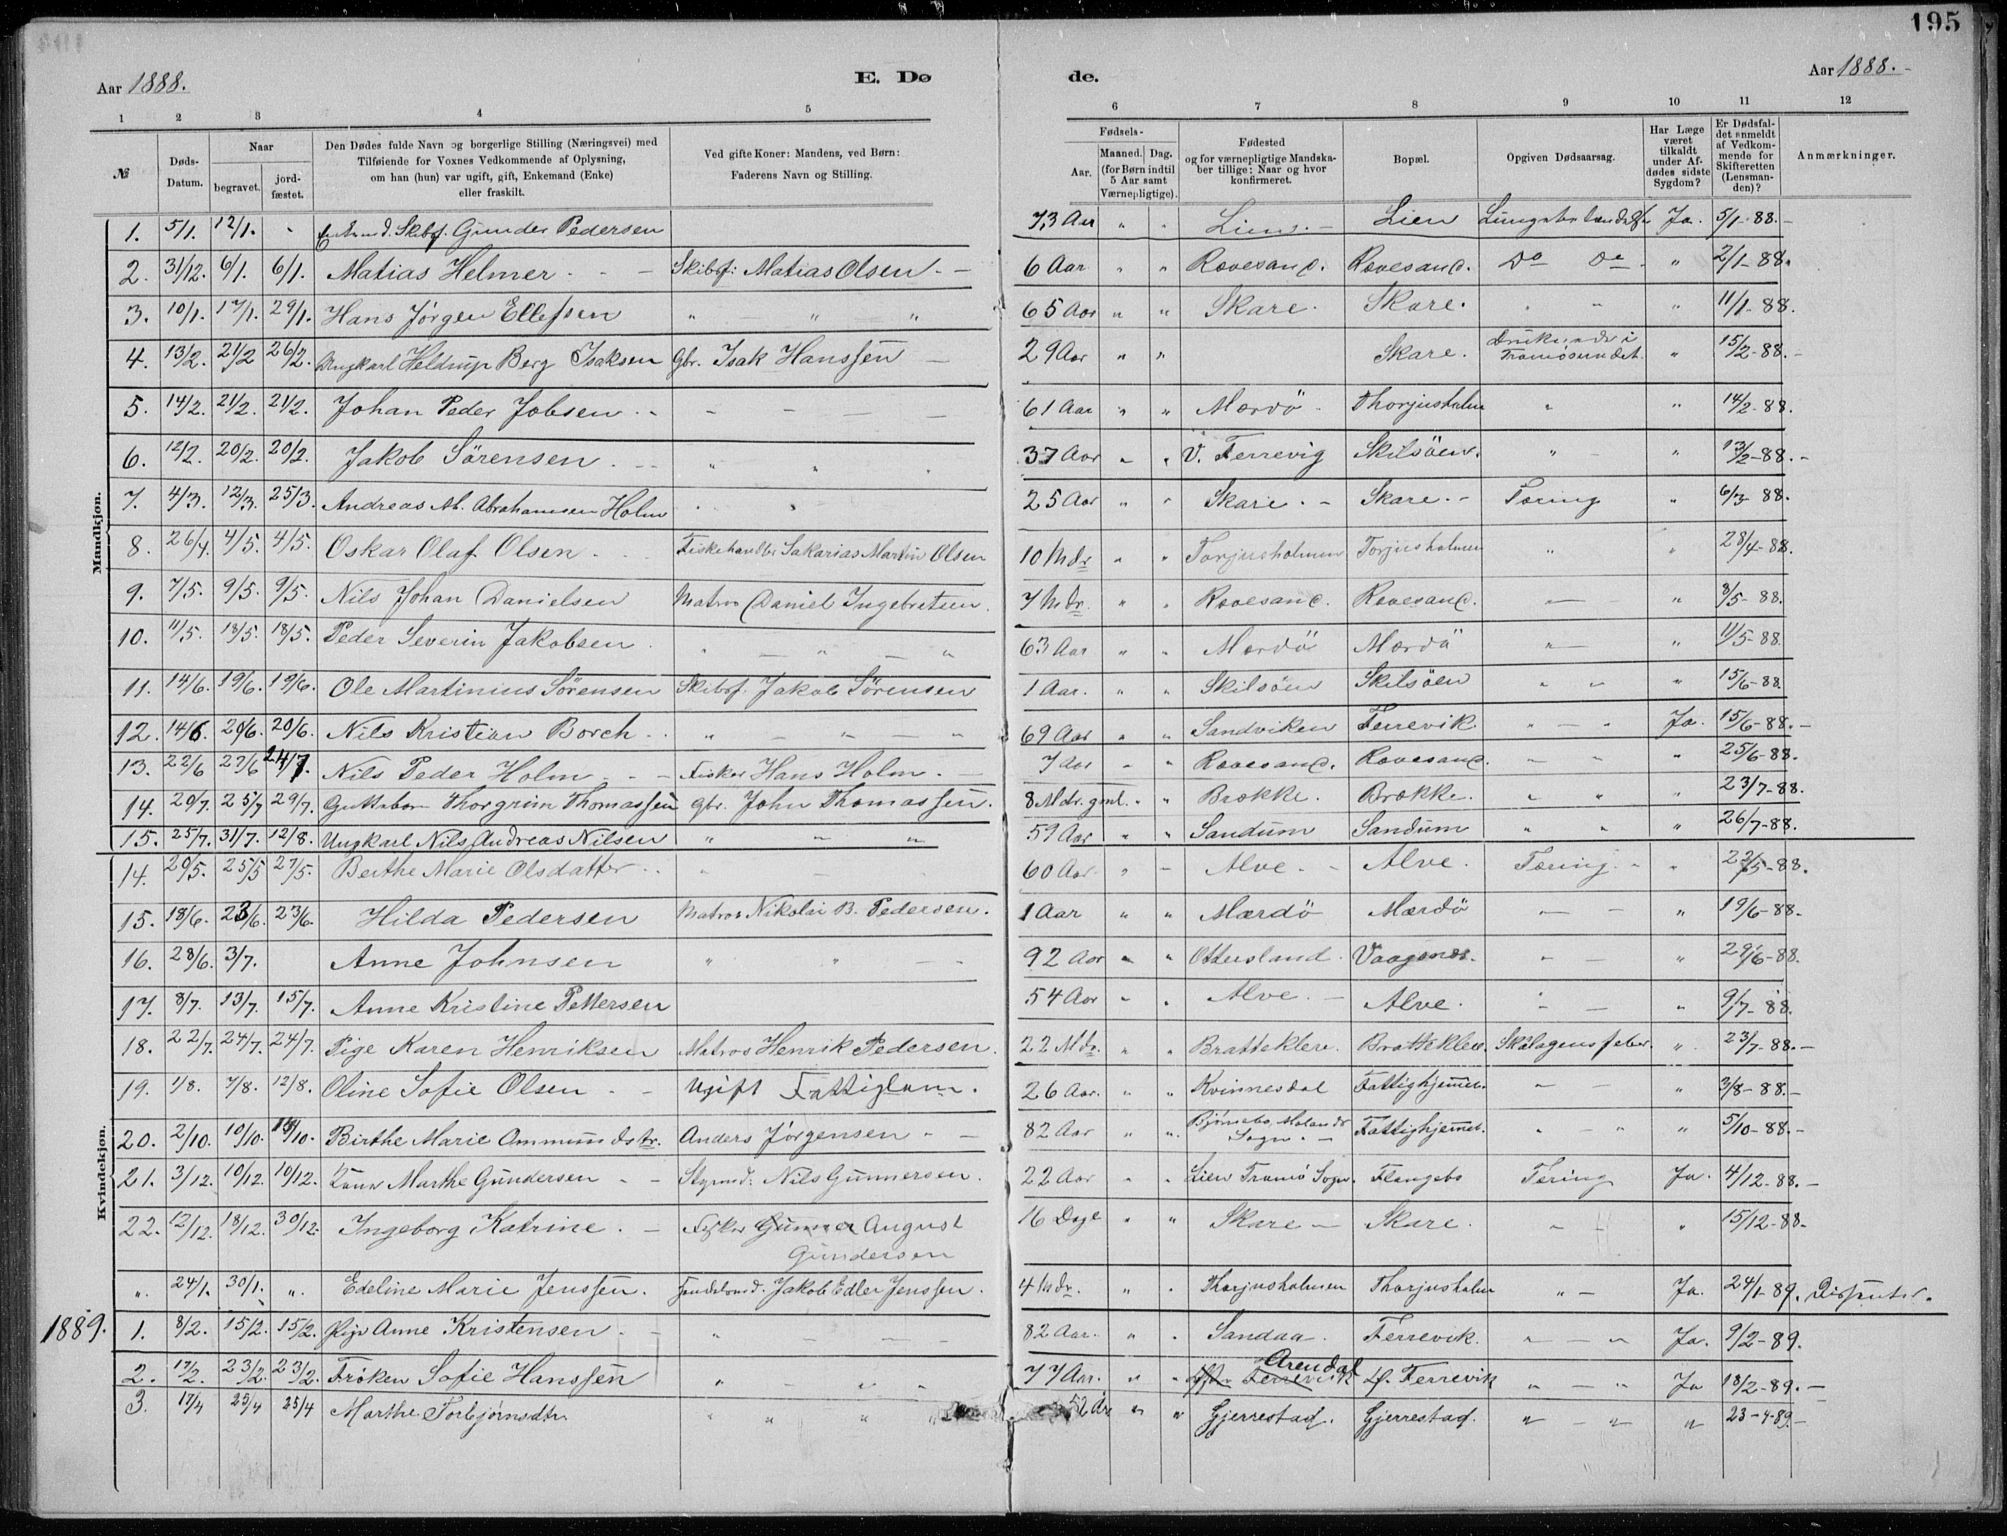 195
Aar 1888. E. Dø de. Aar 1888.
1 2 3 4 5 6 7 8 9 10 11 12
№ Døds-Datum. Naar begravet. jordfæstet. Den Dødes fulde Navn og borgerlige Stilling (Næringsvei) med Tilføiende for Voxnes Vedkommende af Oplysning, om han (hun) var ugift, gift, Enkemand (Enke) eller fraskilt. Ved gifte Koner: Mandens, ved Børn: Faderens Navn og Stilling. Fødsels- Aar. Maaned. Dag. (for Børn indtil 5 Aar samt Værnepligtige). Fødested og for værnepligtige Mandskaber tillige: Naar og hvor konfirmeret. Bopæl. Opgiven Dødsaarsag. Har Læge været tilkaldt under Afdødes sidste Sygdom? Er Dødsfaldet anmeldt af Vedkommende for Skifteretten (Lensmanden)? Anmærkninger.
Mandkjøn.
1. 5/1. 12/1. " Skibsf. Gunder Pedersen 73 Aar " " Lien. Lien Ja. 5/1-88.
2. 31/12. 6/1. 6/1. Matias Helmer Skibsf: Matias Olsen 6 Aar " " Rævesand. Rævesand. Do Do " 2/1-88.
3. 10/1. 17/1. 29/1. Hans Jørgen Ellefsen " " " 65 Aar " " Skare. Skare. " " " 11/1-88.
4. 13/2. 21/2 26/2. Ungkarl Heldrup Berg Isaksen Gbr. Isak Hanssen 29 Aar " " Skare. Druknede i Tromøsundet. " 15/2-88.
5. 14/2. 21/2. 21/2. Johan Peder Jobsen 61 Aar " " Mærdö Thorjusholm " " 14/2-88.
6. 12/2. 20/2. 20/2. Jakob Sörensen " " " 37 Aar " " V. Færrevig Skilsöen. " " 13/2-88.
7. 4/3. 12/3. 25/3. Andreas M. Abrahamsen Holm " " 25 Aar " " Skare Skare Tæring " 6/3 88.
8. 26/4. 4/5. 4/5. Oskar Olaf Olsen Fiskehandler Sakarias Martin Olsen 10 Mdr " " Torjusholmen Torjusholmen " " 28/4-88.
9. 7/5. 9/5. 9/5. Nils Johan Danielsen Matros Daniel Ingebretsen. 7 Mdr. " " Rævesand. Rævesand. " " 8/5-88.
10. 11/5. 18/5. 18/5. Peder Severin Jakobsen " " " 63 Aar " " Mærdö Mærdö " " 11/5-88
11. 14/6. 19/6. 19/6. Ole Martinius Sörensen Skibsf. Jakob Sörensen 1 Aar. " " Skilsöen Skilsöen " " " 15/6-88
12. 14/6. 20/6. 20/6. Nils Kristian Borch " " " 69 Aar " " Sandviken Færrevik " " Ja. 15/6-88.
13. 22/6 27/6 24/7. Nils Peder Holm Fisker Hans Holm. 7 Aar " " Rævesand. Rævesand. " " " 25/6-88.
14. 20/7. 25/7 29/7. Guttebarn Thorgrim Thomassen Gbr. John Thomassen. 8 Mdr. gml. " " Brække. Brække. " " " 23/7-88.
15. 25/7. 31/7. 12/8. Ungkarl Nils Andreas Nilsen " " " 59 Aar " " Sandum Sandum " " " 26/7-88.
Kvindekjøn.
14. 20/5. 25/5 27/5. Berthe Marie Olsdatter " 60 Aar " Alve. Alve. Tæring. " 22/5-88.
15. 18/6. 23/6. 23/6. Hilda Pedersen Matros Nikolai B. Pedersen. 1 Aar " " Mærdö Mærdö " 19/6-88.
16. 28/6. 3/7. Anne Johnsen " " 92 Aar " " Ottersland. Vaagsnes. " " 29/6-88.
17. 8/7. 13/7. 15/7. Anne Kristine Pettersen 54 Aar " " Alve. Alve. " " 9/7-88.
18. 22/7. 24/7. 24/7. Pige Karen Henriksen Matros Henrik Pedersen. 22 Mdr. " " Bratteklev. Bratteklev. Skarlagensfeber. " 23/7-88.
19. 1/8. 7/8. 12/8. Oline Sofie Olsen Ugift Fattiglem. 26 Aar. " " Kvinnesdal Fattighjemmet. " 3/8-88.
20. 2/10. 10/10. 10/10. Birthe Marie Ammundsdtr. Anders Jörgensen 82 Aar " " Sogn Fattighjemmet. " " " 5/10-88.
21. 3/12. 10/12. 10/12. Marthe Gundersen Styrmd. Nils Gunnersen. 22 Aar " " Lien Tromö Sogn. Flangebo Tæring Ja. 4/12-88.
22. 12/12. 18/12. 30/12. Ingeborg Katrine. Fisker Gunner August Gundersen 16 Dage " " Skare Skare. " " 15/12-88.
". 24/1. 30/1. ". Edeline Marie Jenssen. Jakob Edler Jenssen. 4 Mdr. " " Thorjusholmen Thorjusholm " Ja. 24/1-89. Dissenter.
1889. 1. 8/2. 15/2. 15/2. Pige Anne Kristensen " 82 Aar. " " Sandaa. Færrevik. " " Ja. 9/2-89.
2. 17/2. 23/2. 23/2. Fröken Sofie Hanssen " " " 77 Aar. " " Færrevik Arendal Færrevik " " Ja 18/2-89.
3. 17/4 25/4 25/4 Marthe Torbjørnsdtr " " " " 52 År " " Gjerrestad. Gjerrestad. " " " 23-4-89.